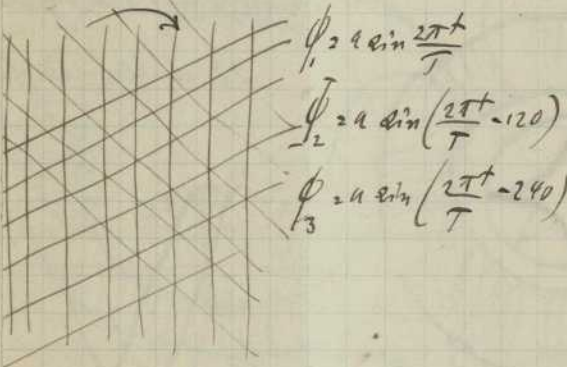 ϕ₁ = a sin 2πt/T
ϕ₂ = a sin (2πt/T - 120)
ϕ₃ = a sin (2πt/T - 240)